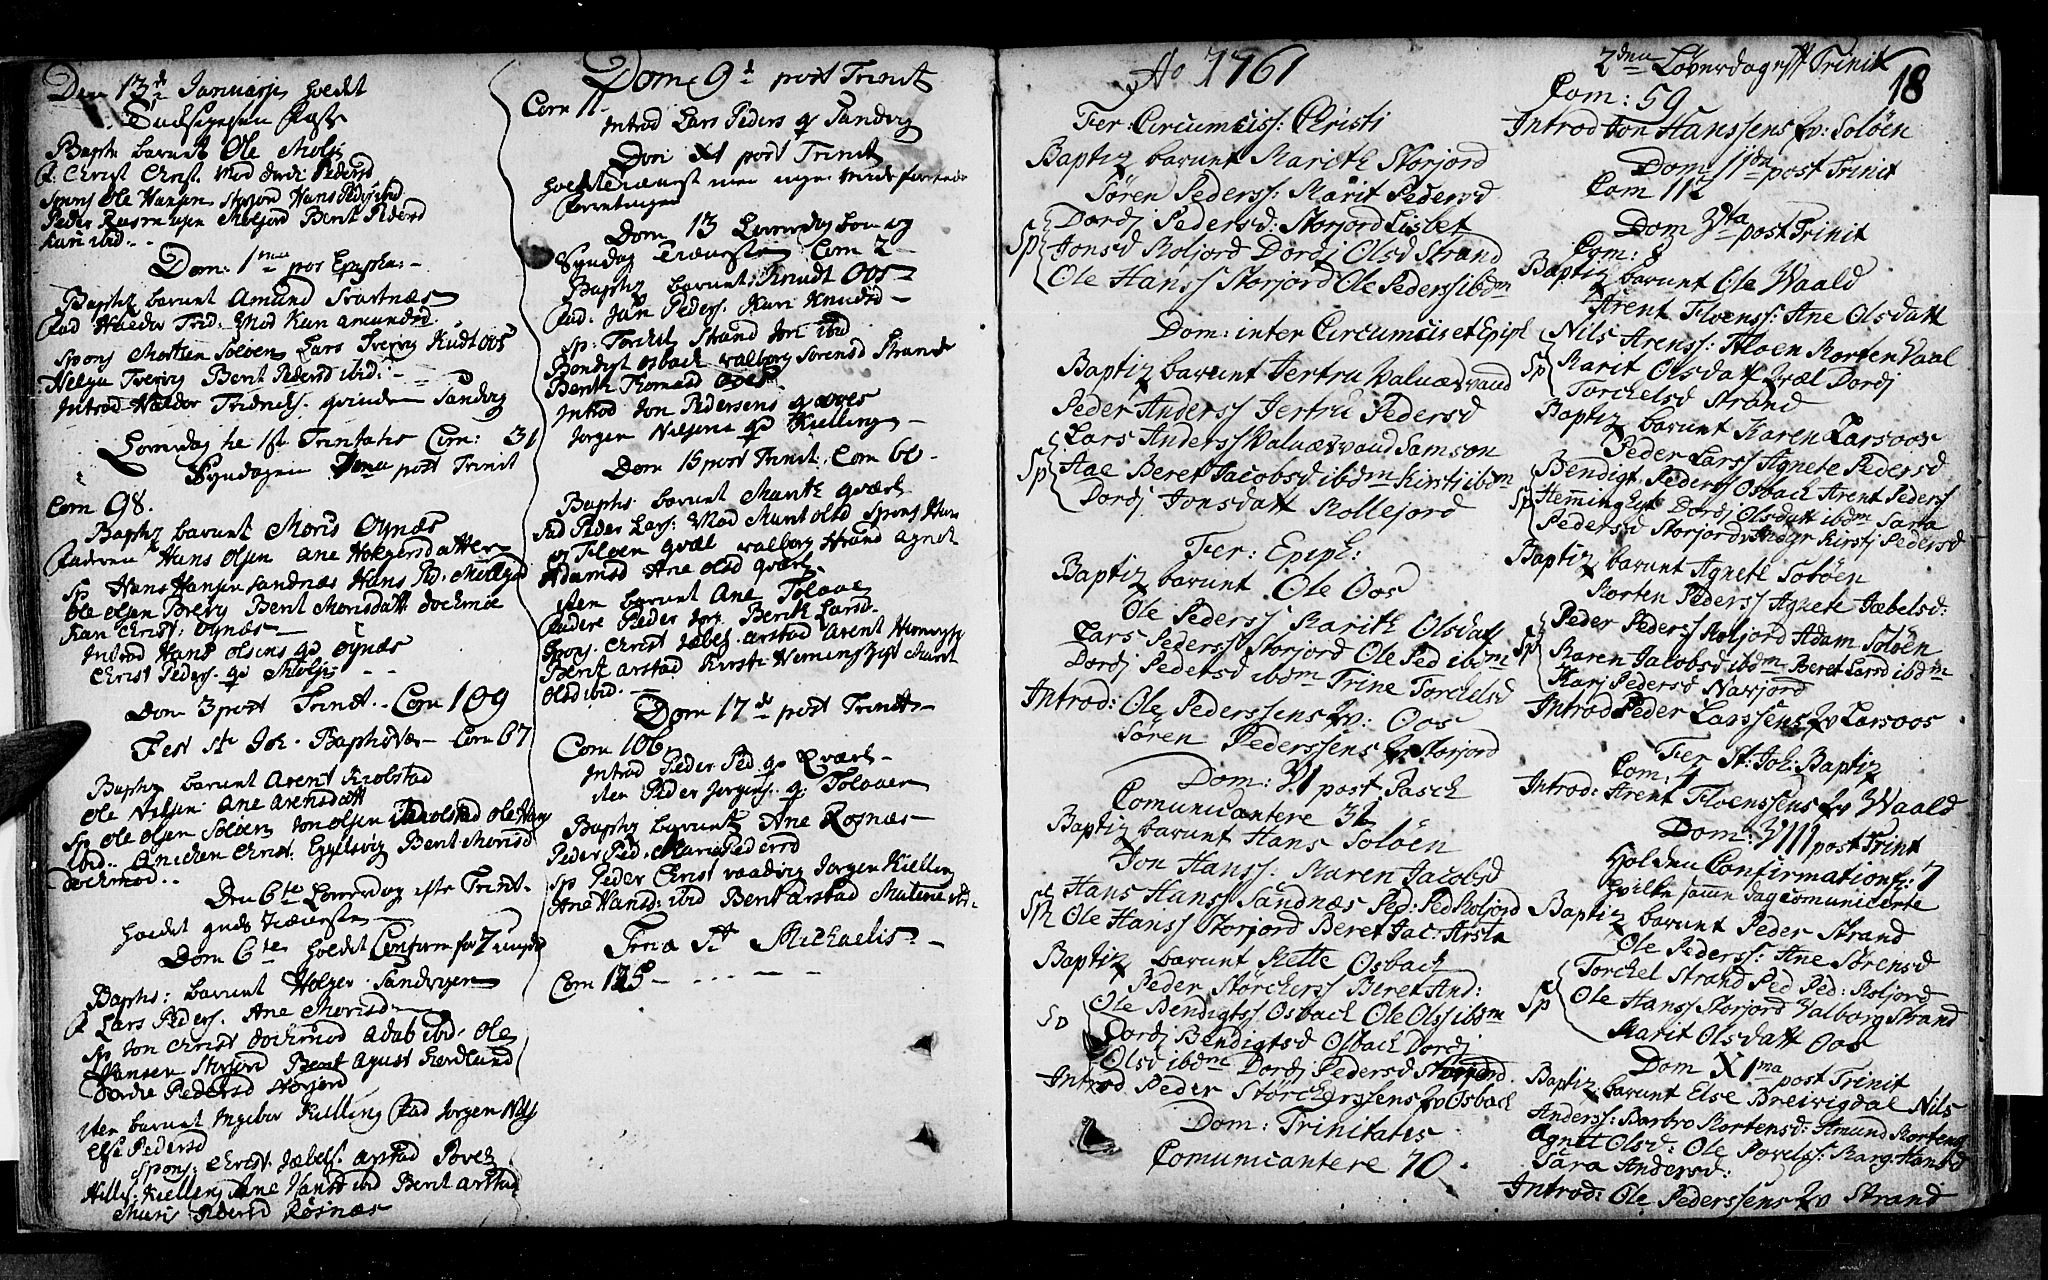 Den 13de Januarij holdt
Gudstienesten
Baptz barnet Ole
F. Christ Christ. Mod Dordi Pedersd
Spons Ole Hansen Storjord Hans Peders ibid
Peder Rasmusen Storjord Berit Pedersd
Kari ibid..
Dom: 1ma post Epipha:
Baptz barnet Amund Svartnæs
Fad Halder Trid: Mod Kari Amundsd
Spons Morten Soløen Lars Kudtoos
Berit Pedersd ibid:
Introd Halder qvinde Sandvig
Lørverdag 1ste Trinitatis Com: 31
Syndagen post Trinit
Com 98.
Baptz barnet Moris Oynæs
Faderen Hans Olsen Ane Holgersdatter
Sp Hans Hansen Sandnæs Hans Ped.
Ole Olsen Berit Morisdatt Dochmoe
Kari Christ: Oynæs
Introd Hans Olsens qv Oynæs
Christ Peders: qv
Dom 3 post Trinit. Com 109
Fest St Joh. Baptistæ Com 67
Baptz barnet Arent Krolstad
Ole Nilsen. Ane Arensdatt
Sp Ole Olsen Soløen Jon Olsen Krolstad Ole Hans
ibid.. Anichen Christ: Berit Morisd
Dochmod..
Den 6te Løverdag efter Trinit.
holdt guds tienesten
Dom 6te holdt Confirm for 7 unge
Baptz: barnet Holger Sandvigen
F Lars Peders. Ane Morisd
Sp Jon Christ Dochmod Adab ibid. Ole
Hansen Storjord Berit
Dordie Pedersd Storjord
iten barnet Ingebor Kielling Fad Jorgen Nils
Else Pedersd
Spons: Christ. Jæbels. Arstad Povel
Nills: Kielling Ane Hansd ibid Berit Arstad
Maris Pedersd Røsnæs
Dom 9de post Trinit
Com 11
Introd Lars Peders qv Sandvig
Dom XI post Trinit
holdt tienest men ingen
Dom 13 Løverdag Com 19
Syndag tienesten Com 2
Baptz barnet: Knudt Oos
Fad. Jon Peders. Kari Knudsd
Sp: Torchel Strand ibid
Bendigt Osbach Valborg Sørensd Strand
Berith Thomasd Oos
Introd Jon Pedersens qv Oos
Jorgen Nilsens qv Kielling
Dom 15 post Trinit. Com 60
Baptz barnet Marith Qværl
Fad Peder Lars: Mod Marit Olsd Spons
og Floen Qvæl Valborg Strand Agnet
Adamsd Ane Olsd Qværl
iten barnet Ane Tolaae
Fadere Peder Jorg. Berith Larsd.
Spons. Christ Jæbels. Arstad Arent Hemingh
Berit Arstad Kirsti Hemingh Marit
Olsd ibid.
Dom 17de post Trinit
Com 106
Introd Peder Ped. qv Qværl
iten Peder Jorgens. qv Tolaaen
Baptz barnet Ane Rosnæs
Peder Ped. Maria Pedersd
Sp Peder Christ Vaadvig Jorgen Kielling
Ane Hansd: ibid Berit Arstad
Feria St Michaelis
Com 125
Ao 1761
Fer: Circumciss: Christi
Baptiz barnet Marith Storjord
Søren Pederss: Marit Pedersd
Sp Dordj Pedersd: Storjord Lislet
Jonsd Roljord Dordj Olsd Strand
Ole Hanss Storjord Ole Pederss ibdm
Dom: inter Circumcis et Epiph
Baptiz barnet Jertru Valnæsvand
Peder Anderss Jertru Pedersd
Lars Anderss Valnæsvand Samson
Sp Aae Beret Jacobsd ibdm Kirsti ibdm
Dordj Jonsdatt Rollejord
Fer: Epiph:
Baptiz barnet Ole Oos
Ole Pederss Marith Olsdatt
Lars Pederss Storjord Ole Ped ibdm
Dordj Pedersd ibdm Trine Torchelsd
Introd: Ole Pederssens qv: Oos
Søren Pederssens qv Storjord
Dom: VI post Pasch
Comunicantere 32
Baptiz barnet Hans Soløen
Jon Hanss: Maren Jacobsd
Hans Hanss Sandnæs Ped: Ped Roljord
Sp Ole Hanss Storjord Beret Jac: Arsta
Baptiz barnet Mette Osbach
Peder Størcherss Beret And:
Sp Ole Bendigtss Osbach Ole Olss ibdm
Dordj Bendigtsd Osbach Dordj
Olsd ibdm Dordj Pedersd Storjord
Introd Peder Størcherssens qv Osbach
Dom: Trinitatis
Comunicantere 70.
18
2den Løverdag eft Trinit
Com: 59
Introd Jon Hanssens qv: Soløen
Dom 11da post Trinit
Com 112
Dom 3tia post Trinit
Com: 8
Baptiz barnet Ole Waald
Arent Floenss: Ane Olsdatt
Nils Arenss: Floen Morten Vaal
Sp Marit Olsdatt Qvæl Dordj
Torchelsd Strand
Baptiz barnet Karen Larsoos
Peder Larss Agnete Pedersd
Bendigt Pederss Osbach Arent Pederss
Sp Heming Dordj Olsdatt ibdm Sara
Pedersd Storjord Kirstj Pedersd
Baptiz barnet Agneth Soløen
Morten Pederss Agnete Jæbelsd:
Peder Pederss Roljord Adam Soløen
Sp Maren Jacobsd ibdm Beret Larsd ibdm
Karj Pedersd Naxjord
Introd Peder Larssens qv Larsoos
Fer St: Joh: Baptiz
Com: 4
Introd: Arent Floenssens qv Waald
Dom: VIII post Trint
Holden Confirmation f: 7
hvilke samme dag comunicerte
Baptiz barnet Peder Strand
Ole Pederss: Ane Sørensd
Torchel Strand Ped Ped: Roljord
Sp Ole Hanss Storjord Valborg Strand
Marit Olsdatt Oos
Dom XIma post Trinit
Baptiz barnet Else Breivigdal Nils
Anderss: Barbro Mortensd: Amund Mortens
Agnet Olsd: Ole Povels: Marg: Hansd
Sara Andersd:
Introd: Ole Pederssens qv Strand